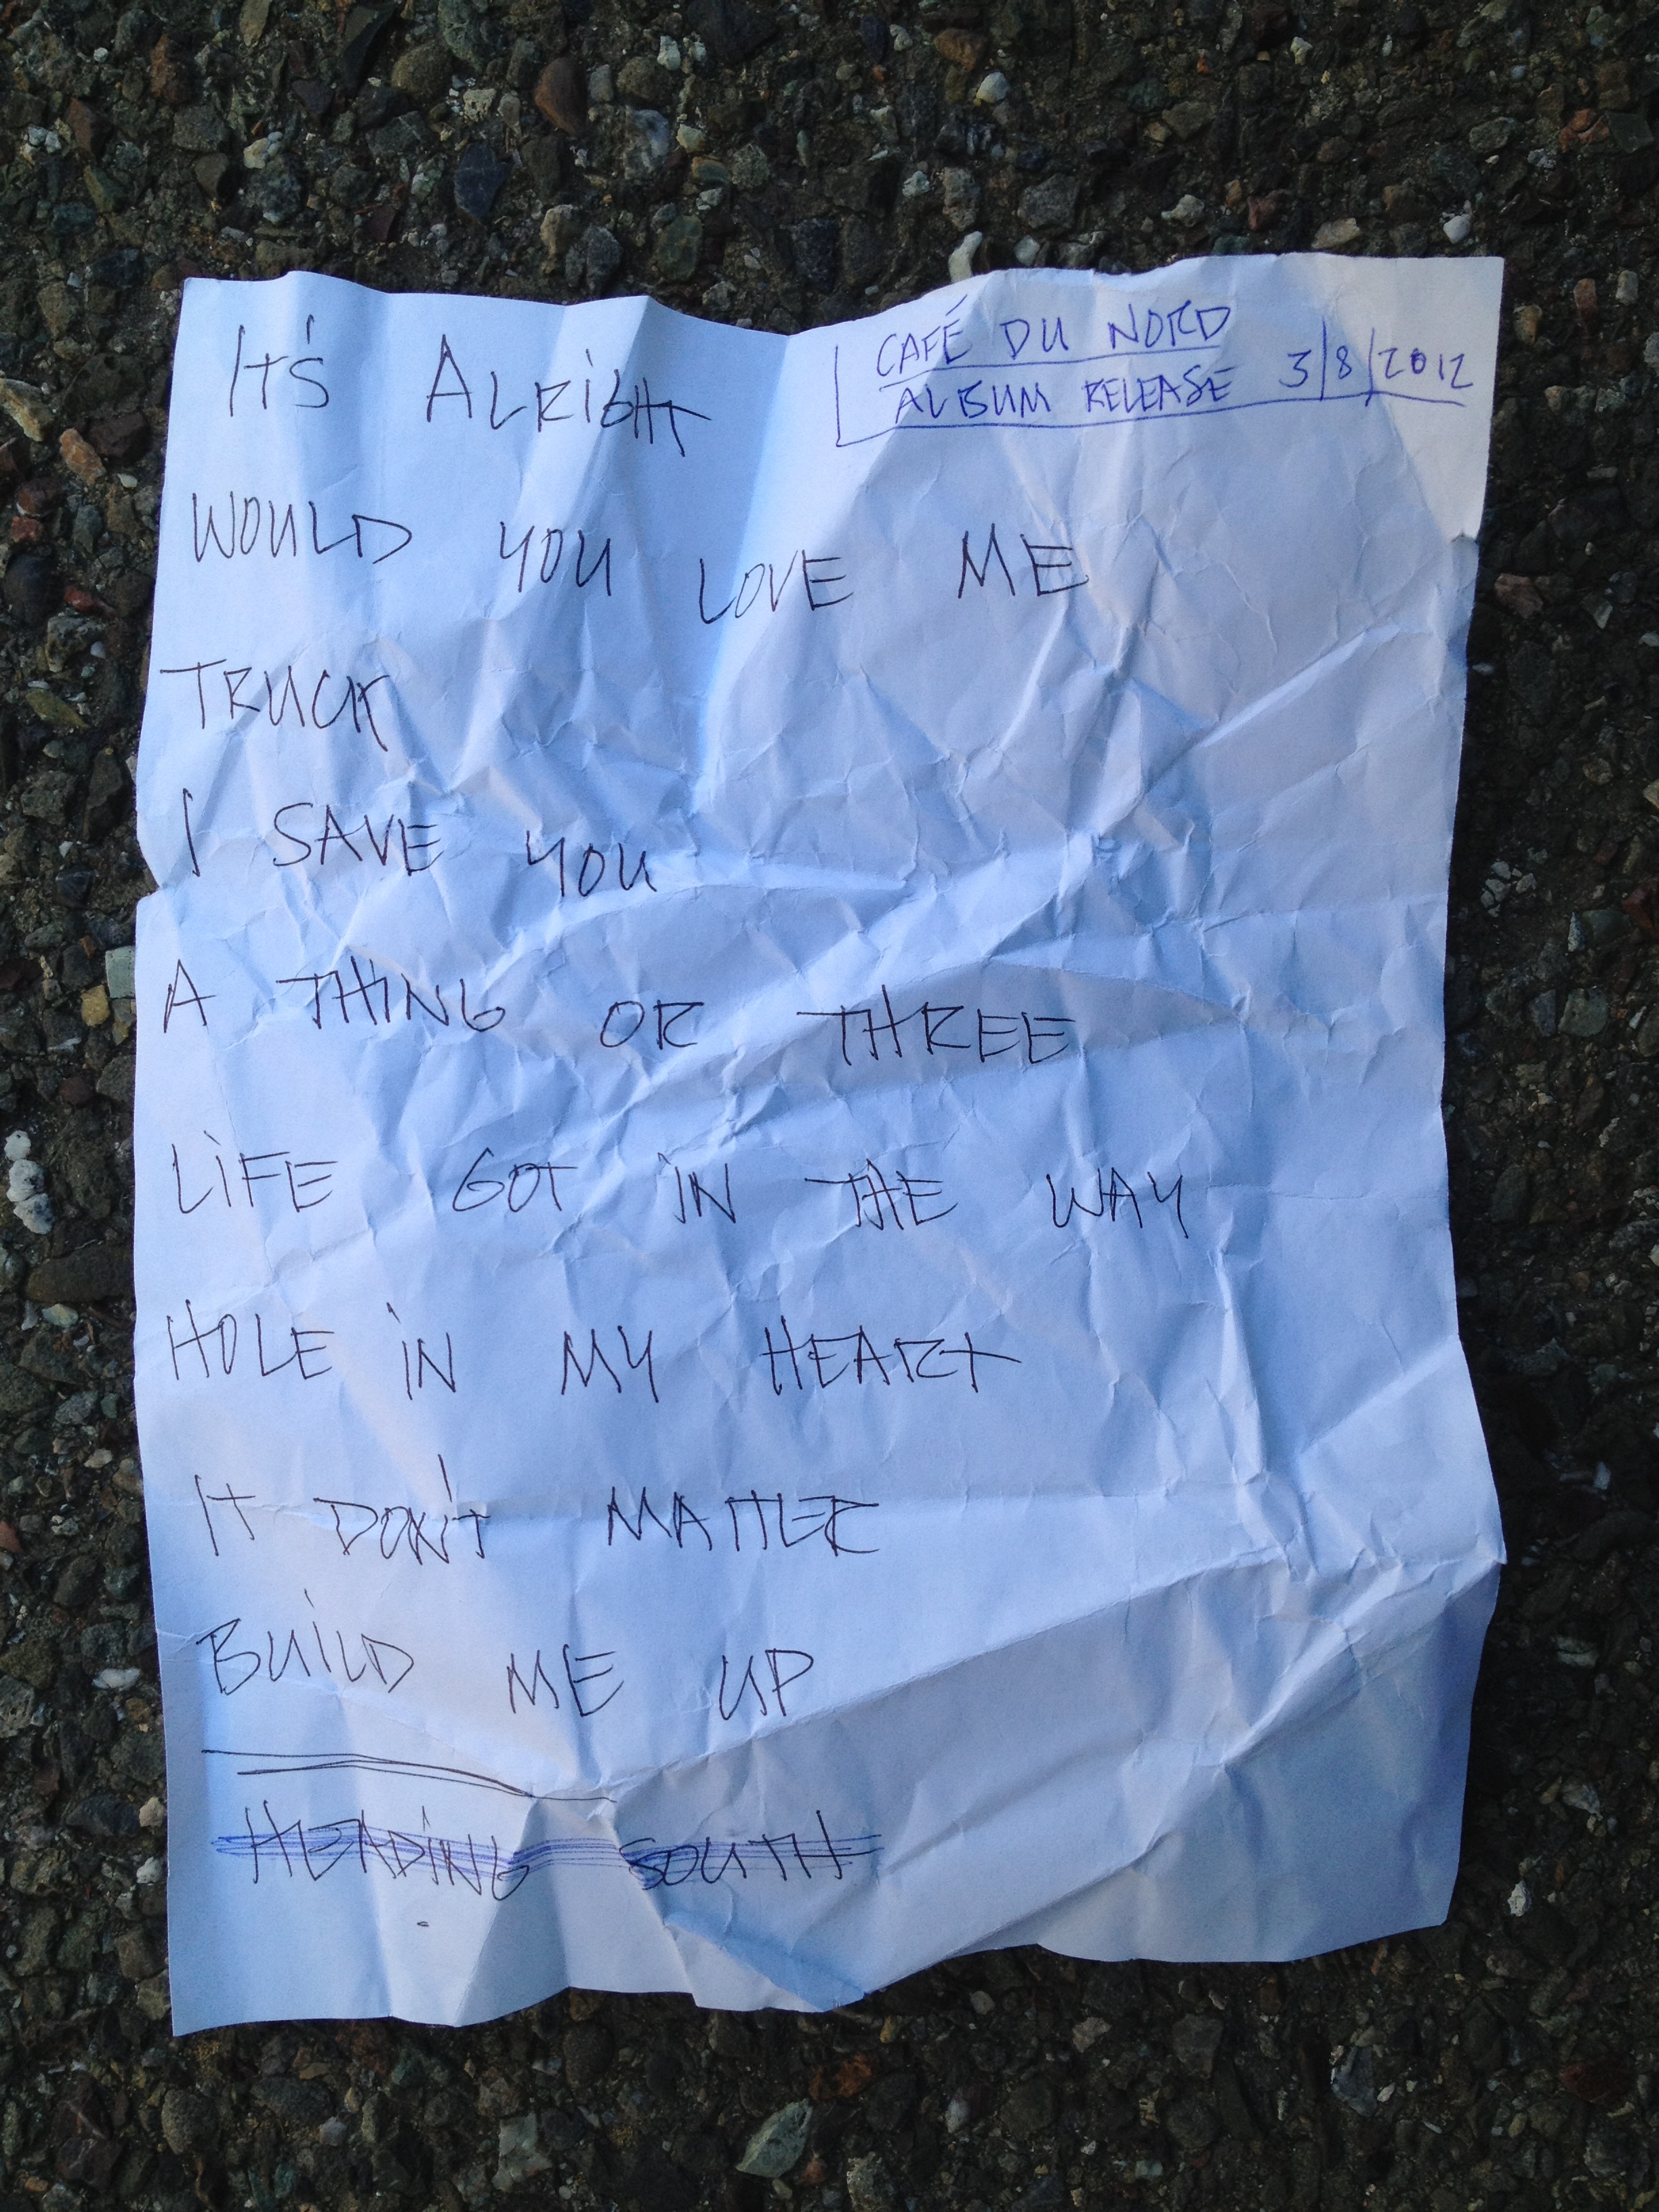 It's Alright
CAFÉ DU NORD
ALBUM RELEASE 3/8/2012
WOULD YOU LOVE ME
TRUCK
I SAVE YOU
A THING OR THREE
LIFE GOT IN THE WAY
HOLE IN MY HEART
IT DON'T MATTER
BUILD ME UP
HEADING SOUTH